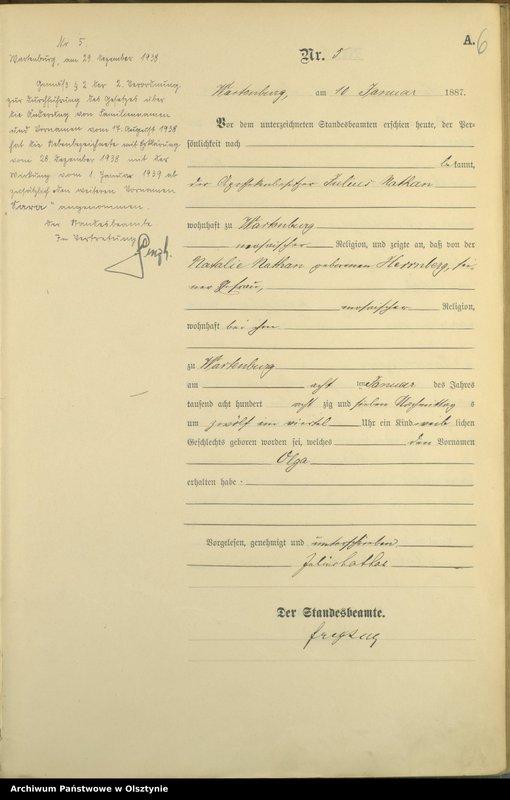 Nr 5.
Wartenburg, am 29. Dezember 1938
Gemäß § 2 der 2. Verordnung
zur Durchführung des Gesetzes über
die Änderung von Familiennamen
und Vornamen vom 17. August 1938
hat die Nebenbezeichnete mit Erklärung
vom 28. Dezember 1938 mit der
Wirkung vom 1. Januar 1939 ab
zusätzlich den weiteren Vornamen
"Sara" angenommen.
Der Standesbeamte
In Vertretung
A.
6
Nr. 5
Wartenburg, am 10 Januar 1887.
Vor dem unterzeichneten Standesbeamten erschien heute, der Per-
sönlichkeit nach
bekannt,
der Julius Nathan
wohnhaft zu Wartenburg
mosaischer Religion, und zeigte an, daß von der
Natalie Nathan geborenen Herrnberg, sei-
ner Ehefrau,
mosaischer Religion,
wohnhaft bei ihm
zu Wartenburg
am acht ten Januar des Jahres
tausend acht hundert acht zig und sieben Nachmittag s
um zwölf ein viertel Uhr ein Kind weib lichen
Geschlechts geboren worden sei, welches den Vornamen
Olga
erhalten habe.
Vorgelesen, genehmigt und unterschrieben
Der Standesbeamte.
Archiwum Państwowe w Olsztynie